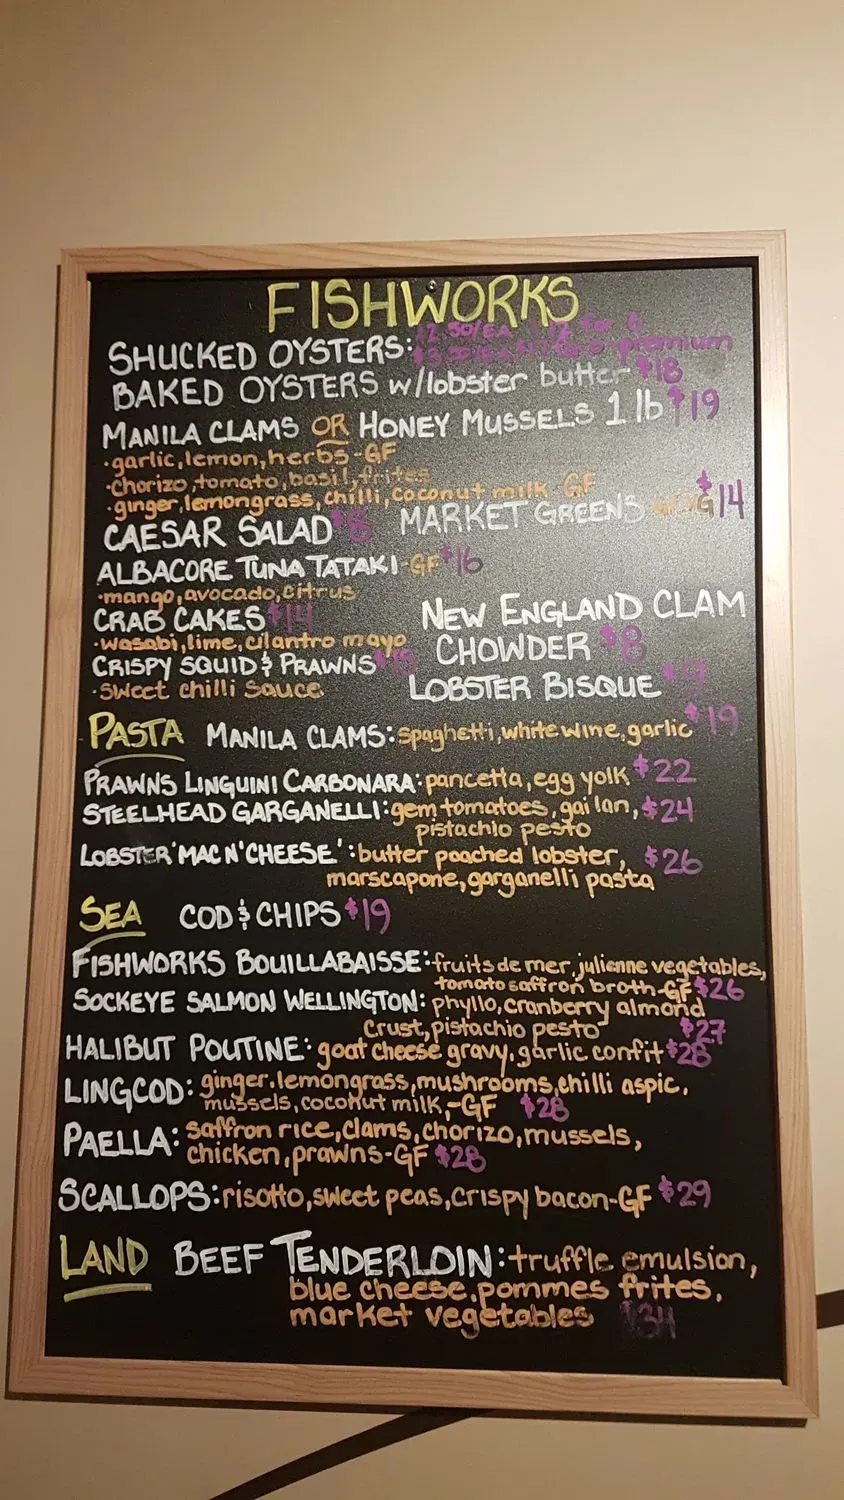 FISHWORKS
SHUCKED OYSTERS: 50/EA for 6
premium
BAKED OYSTERS w/lobster butter $18
MANILA CLAMS OR HONEY MUSSELS 1 lb $19
·garlic, lemon, herbs-GF
·Chorizo, tomato, basil, frites
·ginger, lemongrass, chilli, coconut milk-GF
CAESAR SALAD $8 MARKET GREENS $14
ALBACORE TUNA TATAKI-GF $16
·mango, avocado, citrus
CRAB CAKES $14 NEW ENGLAND CLAM
·wasabi, lime, cilantro mayo CHOWDER $8
CRISPY SQUID & PRAWNS
·sweet chilli sauce LOBSTER BISQUE $9
PASTA MANILA CLAMS: spaghetti, white wine, garlic $19
PRAWNS LINGUINI CARBONARA: pancetta, egg yolk $22
STEELHEAD GARGANELLI: gem tomatoes, gai lan, $24
pistachio pesto
LOBSTER 'MAC N' CHEESE': butter poached lobster, $26
marscapone, garganelli pasta
SEA COD & CHIPS $19
FISHWORKS BOUILLABAISSE: fruits de mer, julienne vegetables,
tomato saffron broth-GF $26
SOCKEYE SALMON WELLINGTON: phyllo, cranberry almond
Crust, pistachio pesto $27
HALIBUT POUTINE: goat cheese gravy, garlic confit $28
LINGCOD: ginger, lemongrass, mushrooms, chilli aspic,
mussels, coconut milk,-GF $28
PAELLA: saffron rice, clams, chorizo, mussels,
chicken, prawns-GF $28
SCALLOPS: risotto, sweet peas, crispy bacon-GF $29
LAND BEEF TENDERLOIN: truffle emulsion,
blue cheese, pommes frites,
market vegetables $34